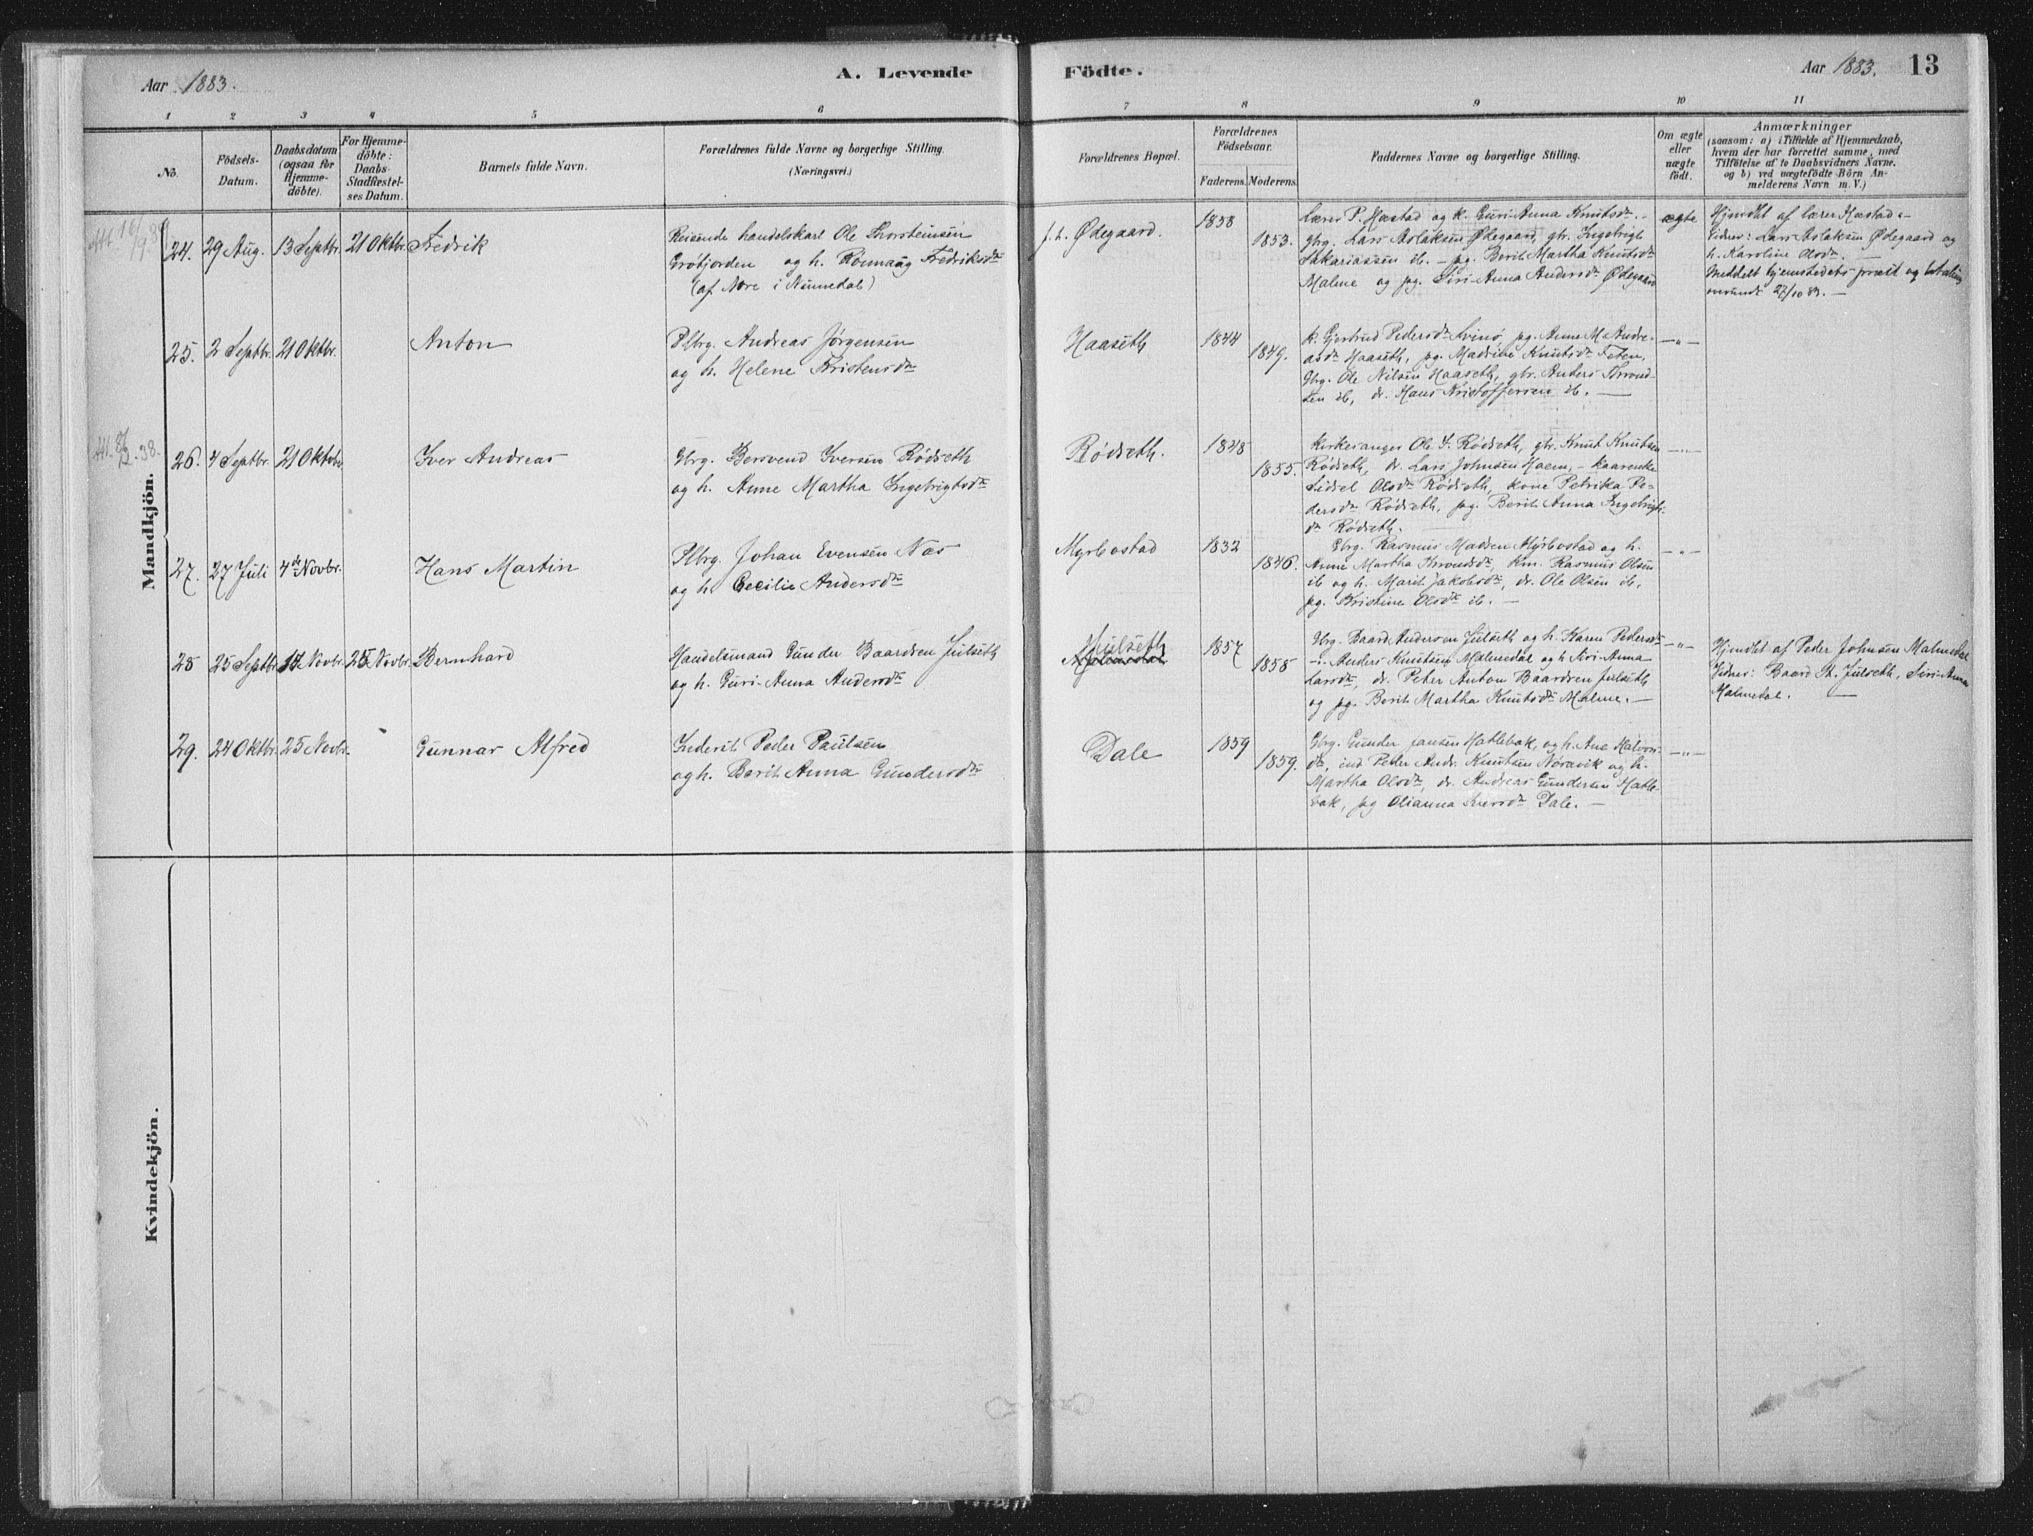 Aar 1883.
A. Levende
Födte.
Aar 1883. 13
1 2 3 4 5 6 7 8 9 10 11
No.
Födsels-
Datum.
Daabsdatum
(ogsaa for
Hjemme-
döbte).
For Hjemme-
döbte:
Daabs-
Stadfæstel-
ses Datum.
Barnets fulde Navn.
Forældrenes fulde Navne og borgerlige Stilling.
(Næringsvei.)
Forældrenes Bopæl.
Forældrenes
Födselsaar.
Faderens. Moderens.
Faddernes Navne og borgerlige Stilling.
Om ægte
eller
uægte
födt.
Anmærkninger
(saasom: a) i Tilfælde af Hjemmedaab,
hvem der har forrettet samme, med
Tilföielse af to Daabsvidners Navne.
og b) ved uægtefödte Börn An-
melderens Navn m. V.)
Mandkjön.
24. 29 Aug. 13 Septbr. 21 Oktbr. Fredrik
Reisende handelskarl Ole Thorsteinsen
Grøfjorden og h. Rönnaug Fredriksdr
(af Nore i Numedal)
f. t. Ødegaard.
1858
1853.
Lærer P. Hastad og k. Guri Anna Knutsdr. -
Gbrg. Lars Aslaksen Ødegaard, gbr. Ingebrigt
Sakariassen ib. - pg. Berit Martha Knutsdr
Malme og pg. Siri Anna Andersdr Ødegaard
ægte
Hjemdbt af lærer Hastad -
Vidner: Lars Aslaksen Ødegaard og
h. Karoline Olsdr. -
Meddelt hjemstedets præst og
27/10 83. -
25. 2 Septbr. 21 Oktbr. Anton
Plbrg. Andreas Jørgensen
og h. Helene Kristensdr
Haaseth
1844
1849.
k. Gjertrud Pedersdr Svinø, pg. Anne M. Andre-
asdr Haaseth, pg. Madsine Knutsdr Feten,
Gbrg. Ole Nilsen Haaseth, gbr. Anders Thrond-
sen ib, dr. Hans Kristoffersen ib. -
-„-
38.
26. 4 Septbr. 21 Oktobr Iver Andreas
Gbrg. Bersvend Iversen Rödseth
og h. Anne Martha Ingebrigtsdr
Rödseth.
1848
1855.
Kirkesanger Ole I. Rödseth, gbr. Knut Knutsen
Rödseth, dr. Lars Johnsen Haem, - kaarenke
Sidsel Olsdr Rödseth, kone Petrika Pe-
dersdr Rödseth, pg. Berit Anna Ingebrigts-
dr Rödseth. -
-„-
27. 27 Juli 4de Novbr. Hans Martin
Plbrg. Johan Evensen Næs
og h. Cecilie Andersdr
Myrbostad
1832
1846.
Gbrg. Rasmus Madsen Myrbostad og h.
Anne Martha Throndsdr, km. Rasmus Olsen
ib og h. Marit Jakobsdr, dr. Ole Olsen ib,
pg. Kristine Olsdr ib. -
-„-
28 25 Septbr 14 Novbr. 25 Novbr. Bernhard
Handelsmand Gunder Baardsen Julseth
og h. Guri-Anna Andersdr
Julseth
1857
1858
Gbrg. Baard Andersen Julseth og h. Karen Pedersdr
-„- Anders Knutsen Malmedal og h Siri-Anna
Larsdr, dr. Peter Anton Baardsen Julseth
og pg. Berit Martha Knutsdr Malme. -
-„-
Hjemdbt af Peder Johnsen Malmedal
Vidner: Baard A. Julseth, Siri-Anna
Malmedal. -
29. 24 Oktbr. 25 Novbr. Gunnar Alfred
Inderst Peder Paulsen
og h. Berit Anna Gundersdr
Dale
1859
1859.
Gbrg. Gunder Jansen Hatlebak, og h. Ane Halvors-
dr, ind Peter Andr. Knutsen Noravik og h.
Martha Olsdr, dr. Andreas Gundersen Hatle-
bak, pg Olianna Iversdr Dale. -
-„-
Kvindekjön.